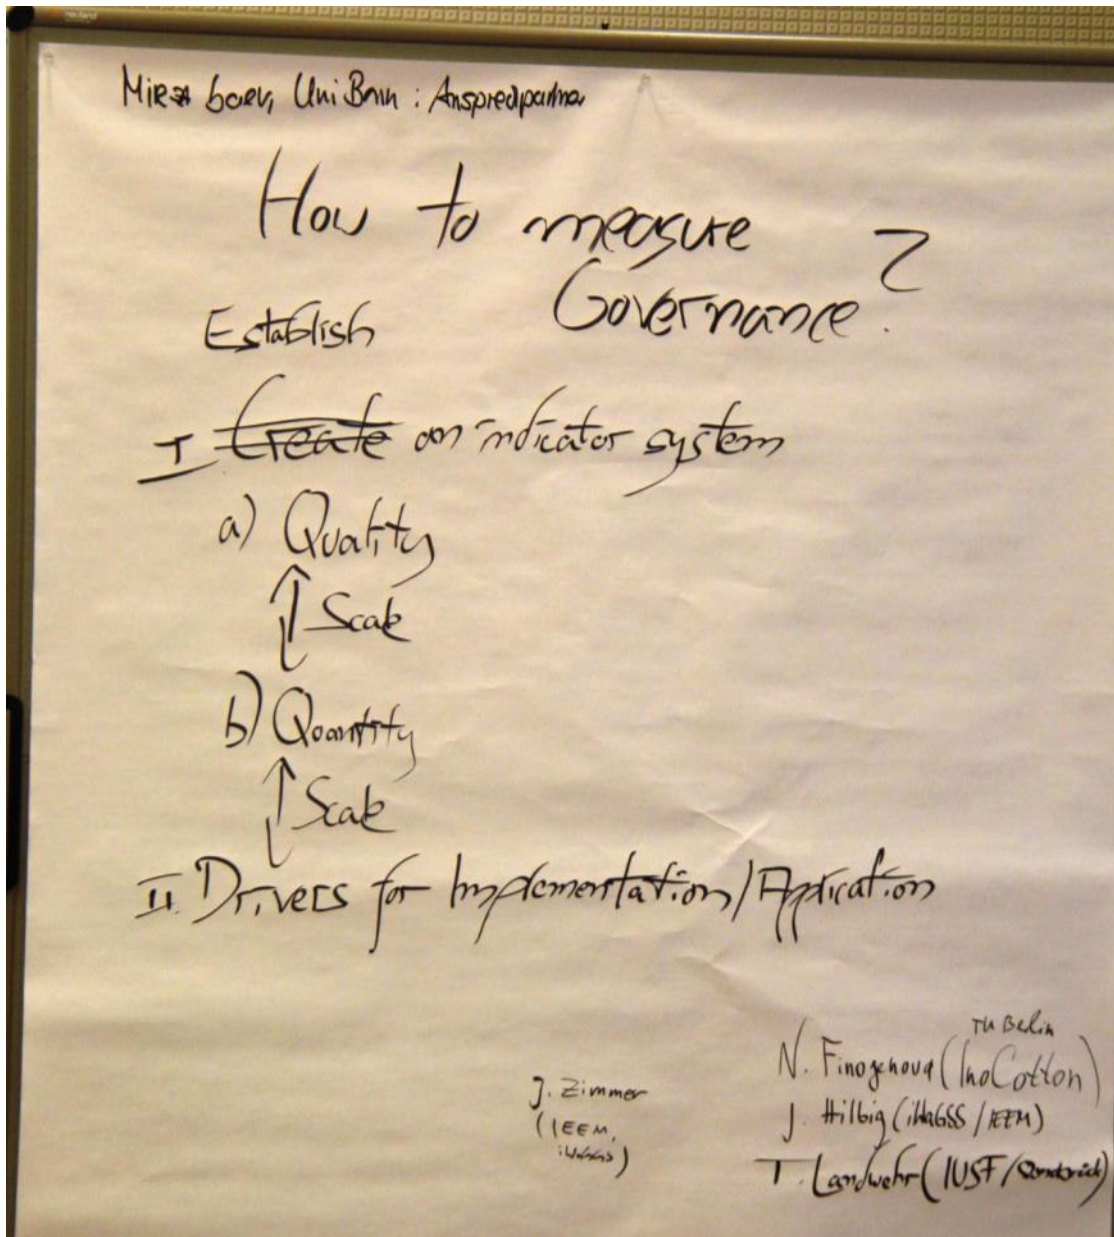 Mirzabaev, Uni Bonn : Ansprechpartner
How to measure
Governance ?
Establish
I Create an indicator system
a) Quality
Scale
b) Quantity
Scale
II. Drivers for Implementation/Application
J. Zimmer
(IEEM,
iWaGSS)
TU Berlin
N. Finogenova (InoCotton)
J. Hilbig (iWaGSS / IEEM)
T. Landwehr (IUSF / Osnabrück)